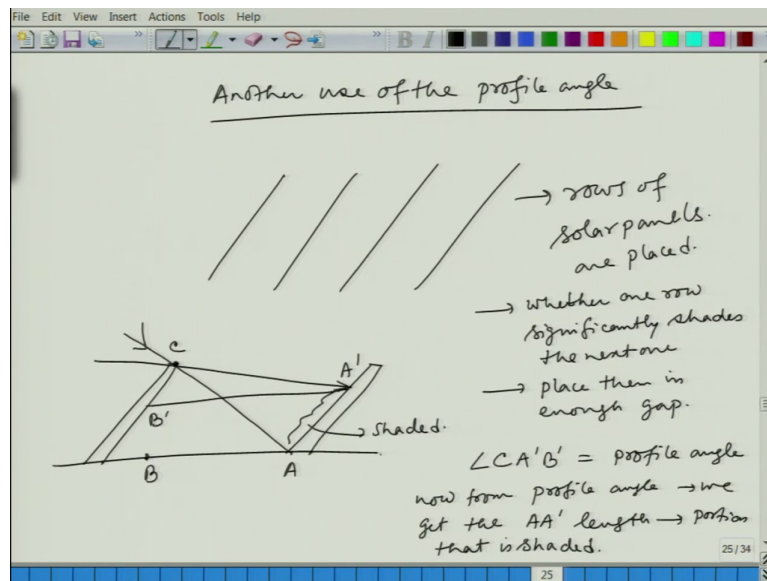 File Edit View Insert Actions Tools Help
B I
Another use of the profile angle
→ rows of
solar panels.
are placed.
→ whether one row
significantly shades
the next one
→ place them in
enough gap.
C
A'
B'
→ shaded.
B
A
∠CA'B' = profile angle
now from profile angle → we
get the AA' length → portion
that is shaded.
25/34
25